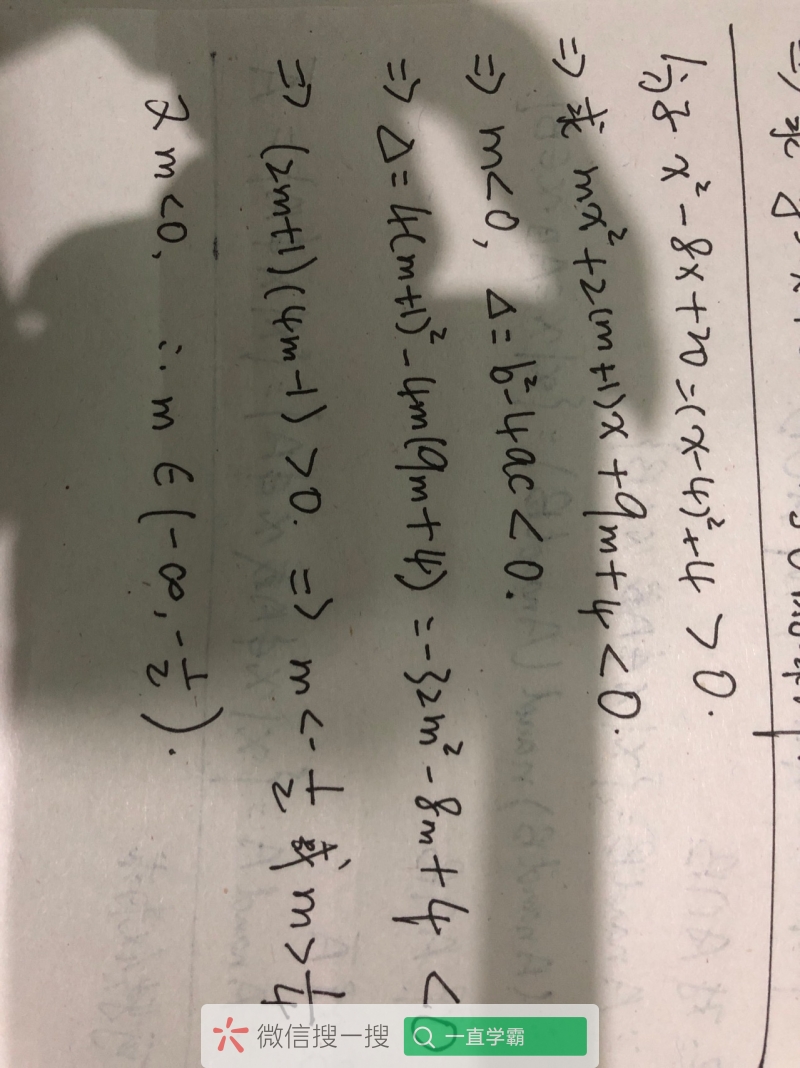 => 求
恒 x² - 8x + 20 = (x-4)² + 4 > 0.
=> 求 mx² + 2(m+1)x + 9m + 4 < 0.
=> m<0, Δ = b² - 4ac < 0.
=> Δ = 4(m+1)² - 4m(9m+4) = -32m² - 8m + 4 < 0
=> (2m+1)(4m-1) > 0. => m < -1/2 或 m > 1/4
又 m<0, ∴ m ∈ (-∞, -1/2).
微信搜一搜
一直学霸